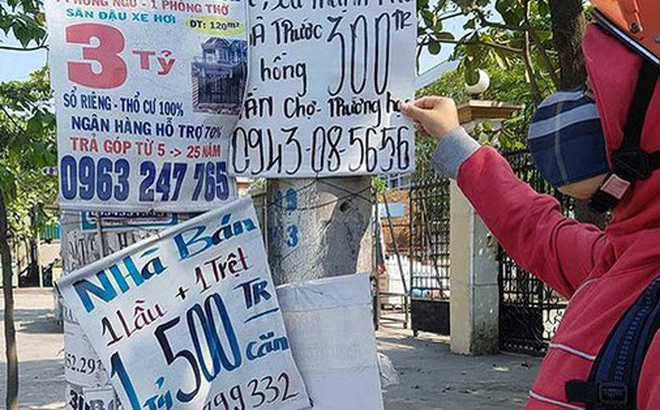 PHÒNG NGỦ - 1 PHÒNG THỜ
SÂN ĐẬU XE HƠI
DT: 120m²
3 TỶ
SỔ RIÊNG - THỔ CƯ 100%
NGÂN HÀNG HỖ TRỢ 70%
TRẢ GÓP TỪ 5 -> 25 NĂM
0963 247 765
Trước 300 TR
hồng
Chợ - Trường học
0943-08-5656
NHÀ BÁN
1 LẦU + 1 Trệt
1 Tỷ 500 TR
Căn
799332